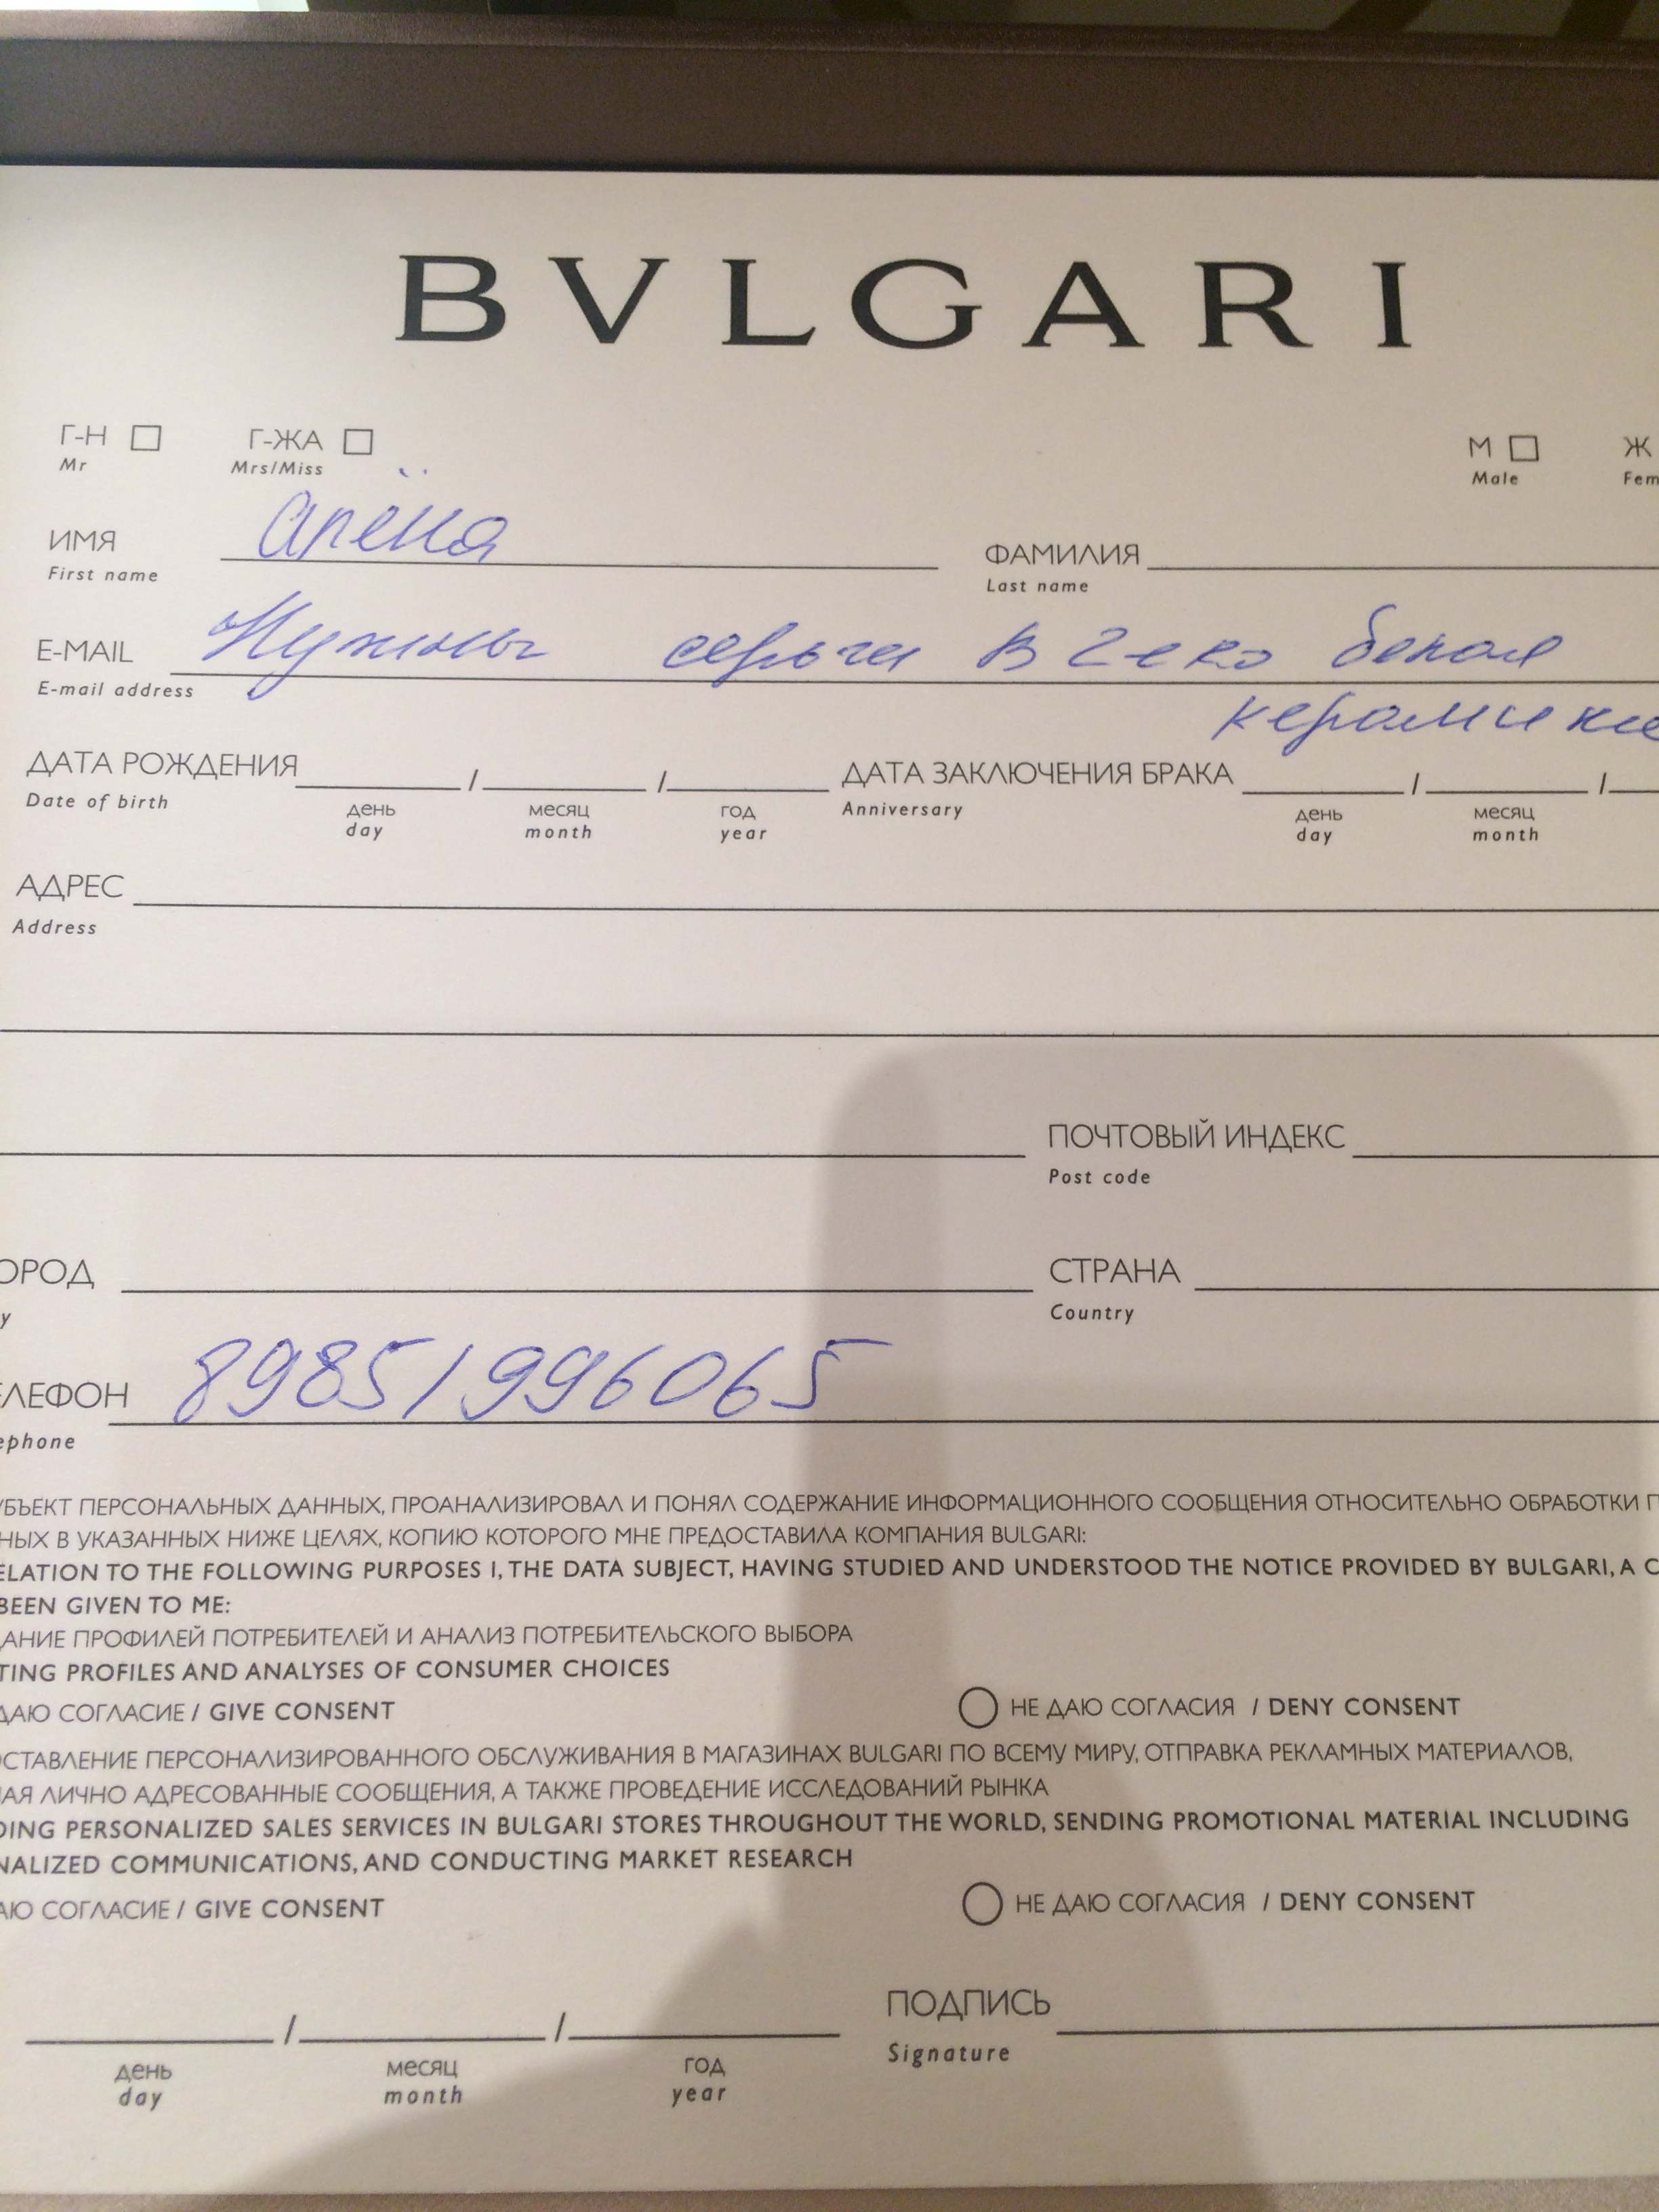 BVLGARI
Г-Н Г-ЖА М Ж
Mr Mrs/Miss Male Fem
ИМЯ Алёна ФАМИЛИЯ
First name Last name
E-MAIL Нужны серьги В 2 еко белая
E-mail address керамика
ДАТА РОЖДЕНИЯ / / ДАТА ЗАКЛЮЧЕНИЯ БРАКА / /
Date of birth день месяц год Anniversary день месяц
day month year day month
АДРЕС
Address
ПОЧТОВЫЙ ИНДЕКС
Post code
ОРОД СТРАНА
y Country
ЕЛЕФОН 89851996065
ephone
УБЪЕКТ ПЕРСОНАЛЬНЫХ ДАННЫХ, ПРОАНАЛИЗИРОВАЛ И ПОНЯЛ СОДЕРЖАНИЕ ИНФОРМАЦИОННОГО СООБЩЕНИЯ ОТНОСИТЕЛЬНО ОБРАБОТКИ П
НЫХ В УКАЗАННЫХ НИЖЕ ЦЕЛЯХ, КОПИЮ КОТОРОГО МНЕ ПРЕДОСТАВИЛА КОМПАНИЯ BULGARI:
ELATION TO THE FOLLOWING PURPOSES I, THE DATA SUBJECT, HAVING STUDIED AND UNDERSTOOD THE NOTICE PROVIDED BY BULGARI, A C
BEEN GIVEN TO ME:
ДАНИЕ ПРОФИЛЕЙ ПОТРЕБИТЕЛЕЙ И АНАЛИЗ ПОТРЕБИТЕЛЬСКОГО ВЫБОРА
TING PROFILES AND ANALYSES OF CONSUMER CHOICES
ДАЮ СОГЛАСИЕ / GIVE CONSENT НЕ ДАЮ СОГЛАСИЯ / DENY CONSENT
ОСТАВЛЕНИЕ ПЕРСОНАЛИЗИРОВАННОГО ОБСЛУЖИВАНИЯ В МАГАЗИНАХ BULGARI ПО ВСЕМУ МИРУ, ОТПРАВКА РЕКЛАМНЫХ МАТЕРИАЛОВ,
АЯ ЛИЧНО АДРЕСОВАННЫЕ СООБЩЕНИЯ, А ТАКЖЕ ПРОВЕДЕНИЕ ИССЛЕДОВАНИЙ РЫНКА
DING PERSONALIZED SALES SERVICES IN BULGARI STORES THROUGHOUT THE WORLD, SENDING PROMOTIONAL MATERIAL INCLUDING
NALIZED COMMUNICATIONS, AND CONDUCTING MARKET RESEARCH
АЮ СОГЛАСИЕ / GIVE CONSENT НЕ ДАЮ СОГЛАСИЯ / DENY CONSENT
/ / ПОДПИСЬ
день месяц год Signature
day month year